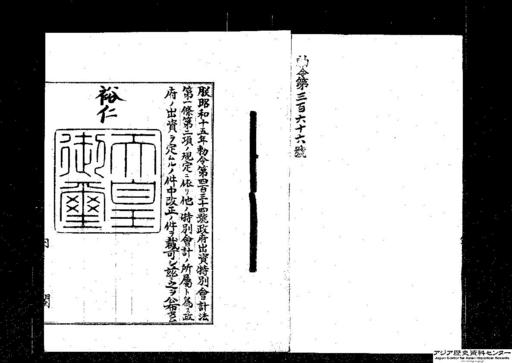 勅令第三百六十六號
朕昭和十五年勅令第四百三十四號政府出資特別會計法
第一條第二項ノ規定ニ依リ他ノ特別會計ノ所屬ト爲ス政
府ノ出資ヲ定ムルノ件中改正ノ件ヲ裁可シ茲ニ之ヲ公布セシム
裕仁
天皇
御璽
アジア歴史資料センター
Japan Center for Asian Historical Records